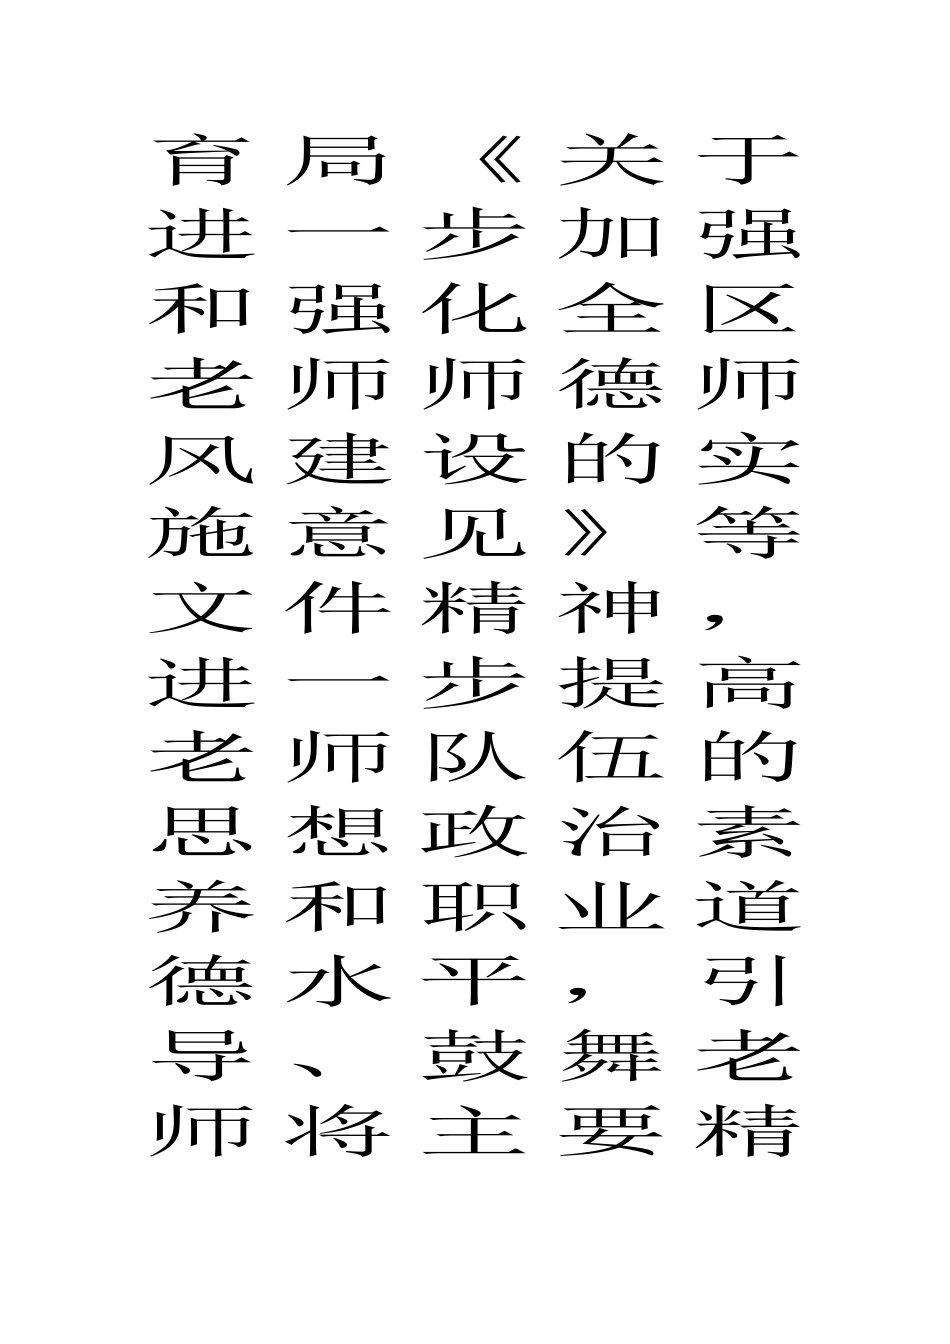 育局《关于
进一步加强
和强化全区
老师师德师
风建设的实
施意见》等
文件精神，
进一步提高
老师队伍的
思想政治素
养和职业道
德水平，引
导、鼓舞老
师将主要精